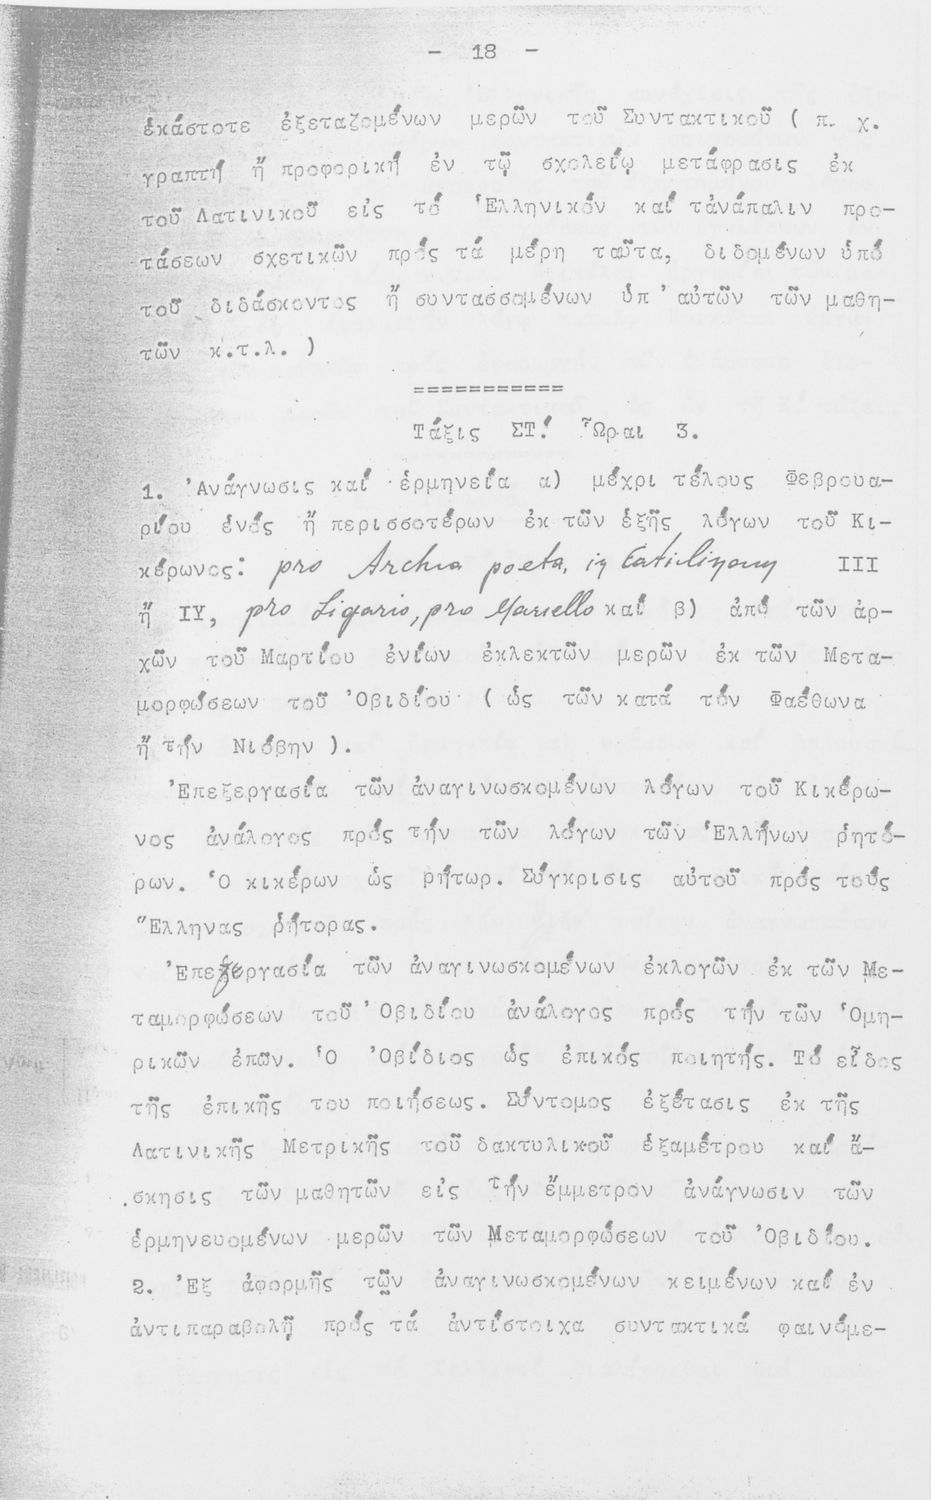 - 18 -
ἑκάστοτε ἐξεταζομένων μερῶν τοῦ Συντακτικοῦ ( π. χ.
γραπτή ἤ προφορική ἐν τῷ σχολείῳ μετάφρασις ἐκ
τοῦ Λατινικοῦ εἰς τό Ἑλληνικόν καί τἀνάπαλιν προ-
τάσεων σχετικῶν πρός τά μέρη ταῦτα, διδομένων ὑπό
τοῦ διδάσκοντος ἤ συντασσομένων ὑπ' αὐτῶν τῶν μαθη-
τῶν κ.τ.λ. )
===========
Τάξις ΣΤ! Ὧραι 3.
1. Ἀνάγνωσις καί ἑρμηνεία α) μέχρι τέλους Φεβρουα-
ρίου ἑνός ἤ περισσοτέρων ἐκ τῶν ἑξῆς λόγων τοῦ Κι-
κέρωνος: pro Archia poeta, in Catilinam III
ἤ IY, pro Ligario, pro Marcello καί β) ἀπό τῶν ἀρ-
χῶν τοῦ Μαρτίου ἐνίων ἐκλεκτῶν μερῶν ἐκ τῶν Μετα-
μορφώσεων τοῦ Ὀβιδίου ( ὡς τῶν κατά τόν Φαέθωνα
ἤ τήν Νιόβην ).
Ἐπεξεργασία τῶν ἀναγινωσκομένων λόγων τοῦ Κικέρω-
νος ἀνάλογος πρός τήν τῶν λόγων τῶν Ἑλλήνων ῥητό-
ρων. Ὁ κικέρων ὡς ρήτωρ. Σύγκρισις αὐτοῦ πρός τούς
Ἕλληνας ῥήτορας.
Ἐπεξεργασία τῶν ἀναγινωσκομένων ἐκλογῶν ἐκ τῶν Με-
ταμορφώσεων τοῦ Ὀβιδίου ἀνάλογος πρός τήν τῶν Ὁμη-
ρικῶν ἐπῶν. Ὁ Ὀβίδιος ὡς ἐπικός ποιητής. Τό εἶδος
τῆς ἐπικῆς του ποιήσεως. Σύντομος ἐξέτασις ἐκ τῆς
Λατινικῆς Μετρικῆς τοῦ δακτυλικοῦ ἑξαμέτρου καί ἄ-
σκησις τῶν μαθητῶν εἰς τήν ἔμμετρον ἀνάγνωσιν τῶν
ἑρμηνευομένων μερῶν τῶν Μεταμορφώσεων τοῦ Ὀβιδίου.
2. Ἐξ ἀφορμῆς τῶν ἀναγινωσκομένων κειμένων καί ἐν
ἀντιπαραβολῇ πρός τά ἀντίστοιχα συντακτικά φαινόμε-